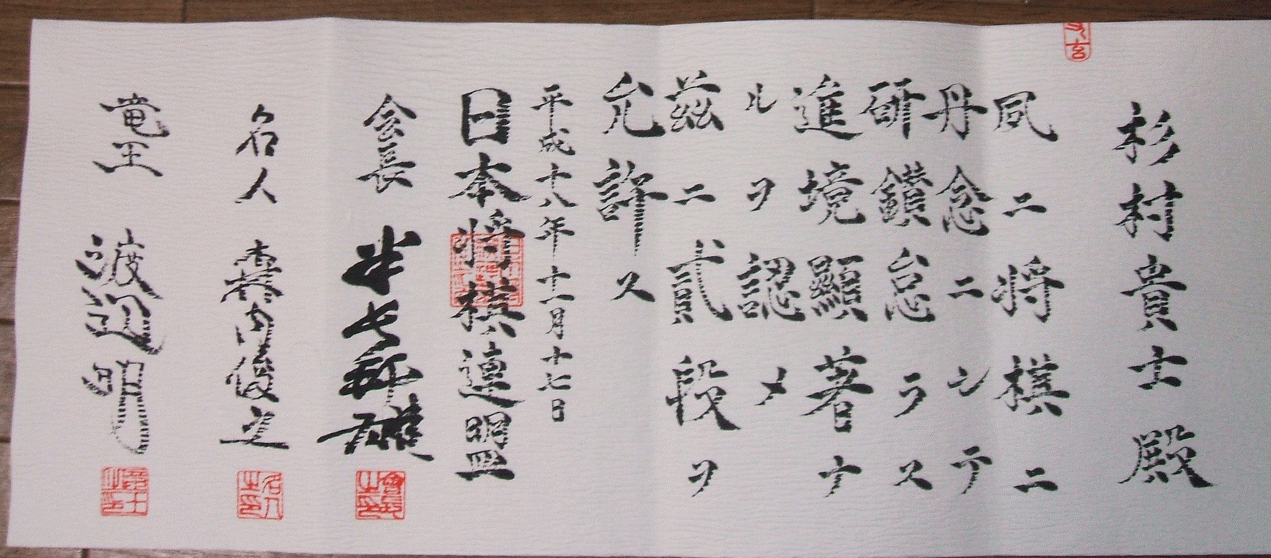 杉村貴士殿
夙ニ将棋ニ
丹念ニシテ
研鑚怠ラス
進境顯著ナ
ルヲ認メ
茲ニ貳段ヲ
允許ス
平成十八年十一月十七日
日本将棋連盟
会長 米長邦雄
名人 森内俊之
竜王 渡辺明